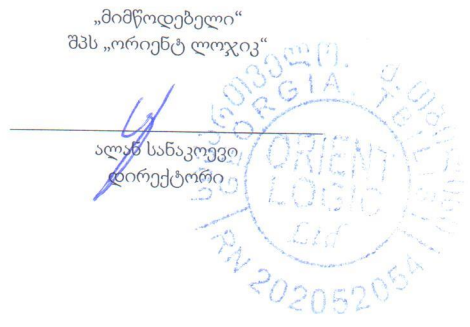 „მიმწოდებელი“
შპს „ორიენტ ლოჯიკ“
ალან სანაკოევი
დირექტორი
GEORGIA, TBILISI
ORIENT
LOGIC
Ltd
RN 202052054